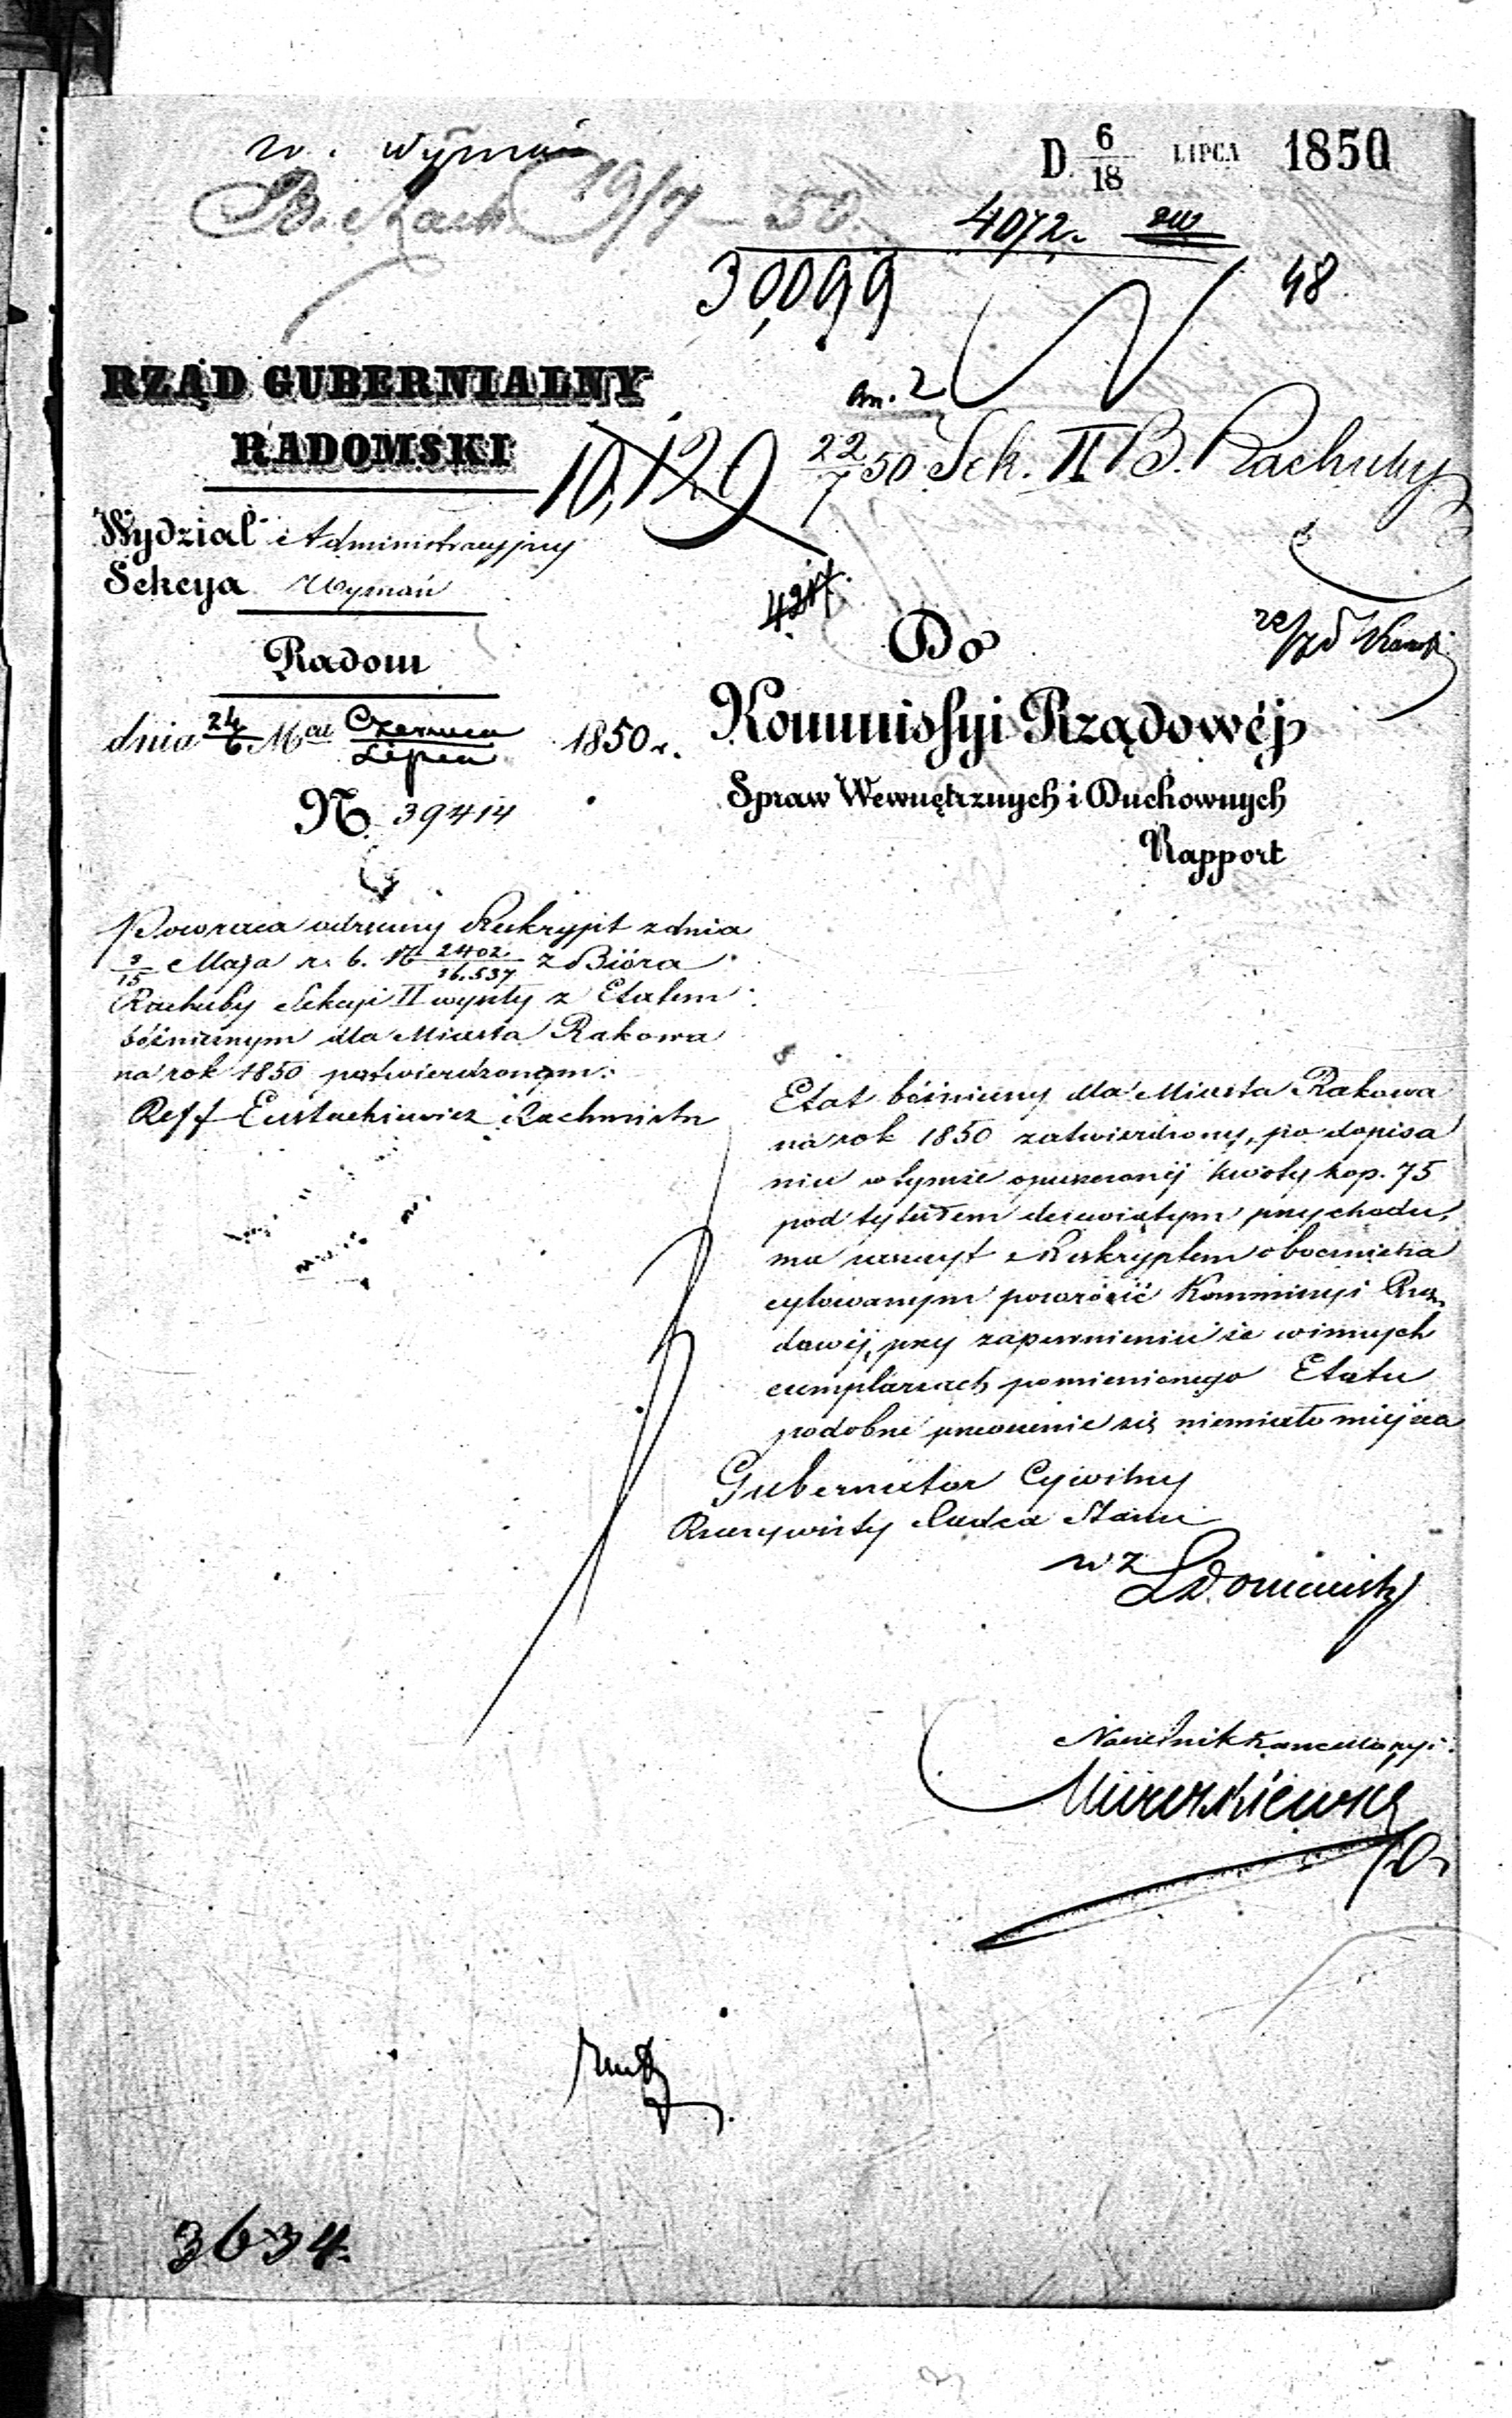 w. Wyznań
D. 6/18 LIPCA 1850
B. Rach. 19/7 - 50.
4072.
30,099
48
RZĄD GUBERNIALNY
RADOMSKI
an. 2
10,129
22/7 50 Sek. II B. Rachuby
Wydział Administracyjny
Sekcya Wyznań
Radom
dnia 24/6 Mca Czerwca/Lipca 1850 r.
N. 39414
4217.
Do
Kommissyi Rządowéj
Spraw Wewnętrznych i Duchownych
Rapport
Powraca odręczny Reskrypt z dnia
3/15 Maja r. b. N 2402/16.537 z Bióra
Rachuby Sekcyi II wyszły z Etatem
bóźniczym dla Miasta Rakowa
na rok 1850 potwierdzonym.
Reff Eustachiewicz Rachmistrz
Etat bóźniczny dla Miasta Rakowa
na rok 1850 zatwierdzony, po dopisa
niu w tymże opuszczonéj kwoty kop. 75
pod tytułem dziewiątym przychodu,
ma zaszczyt z Reskryptem obocznie
cytowanym powrócić Kommissyi Rzą
dowéj, przy zapewnieniu że w innych
exemplarzach pomienionego Etatu
podobne uchybienie się niemiało miejsca
Gubernator Cywilny
Rzeczywisty Radca Stanu
w z
Naczelnik Kancellaryi
3634.